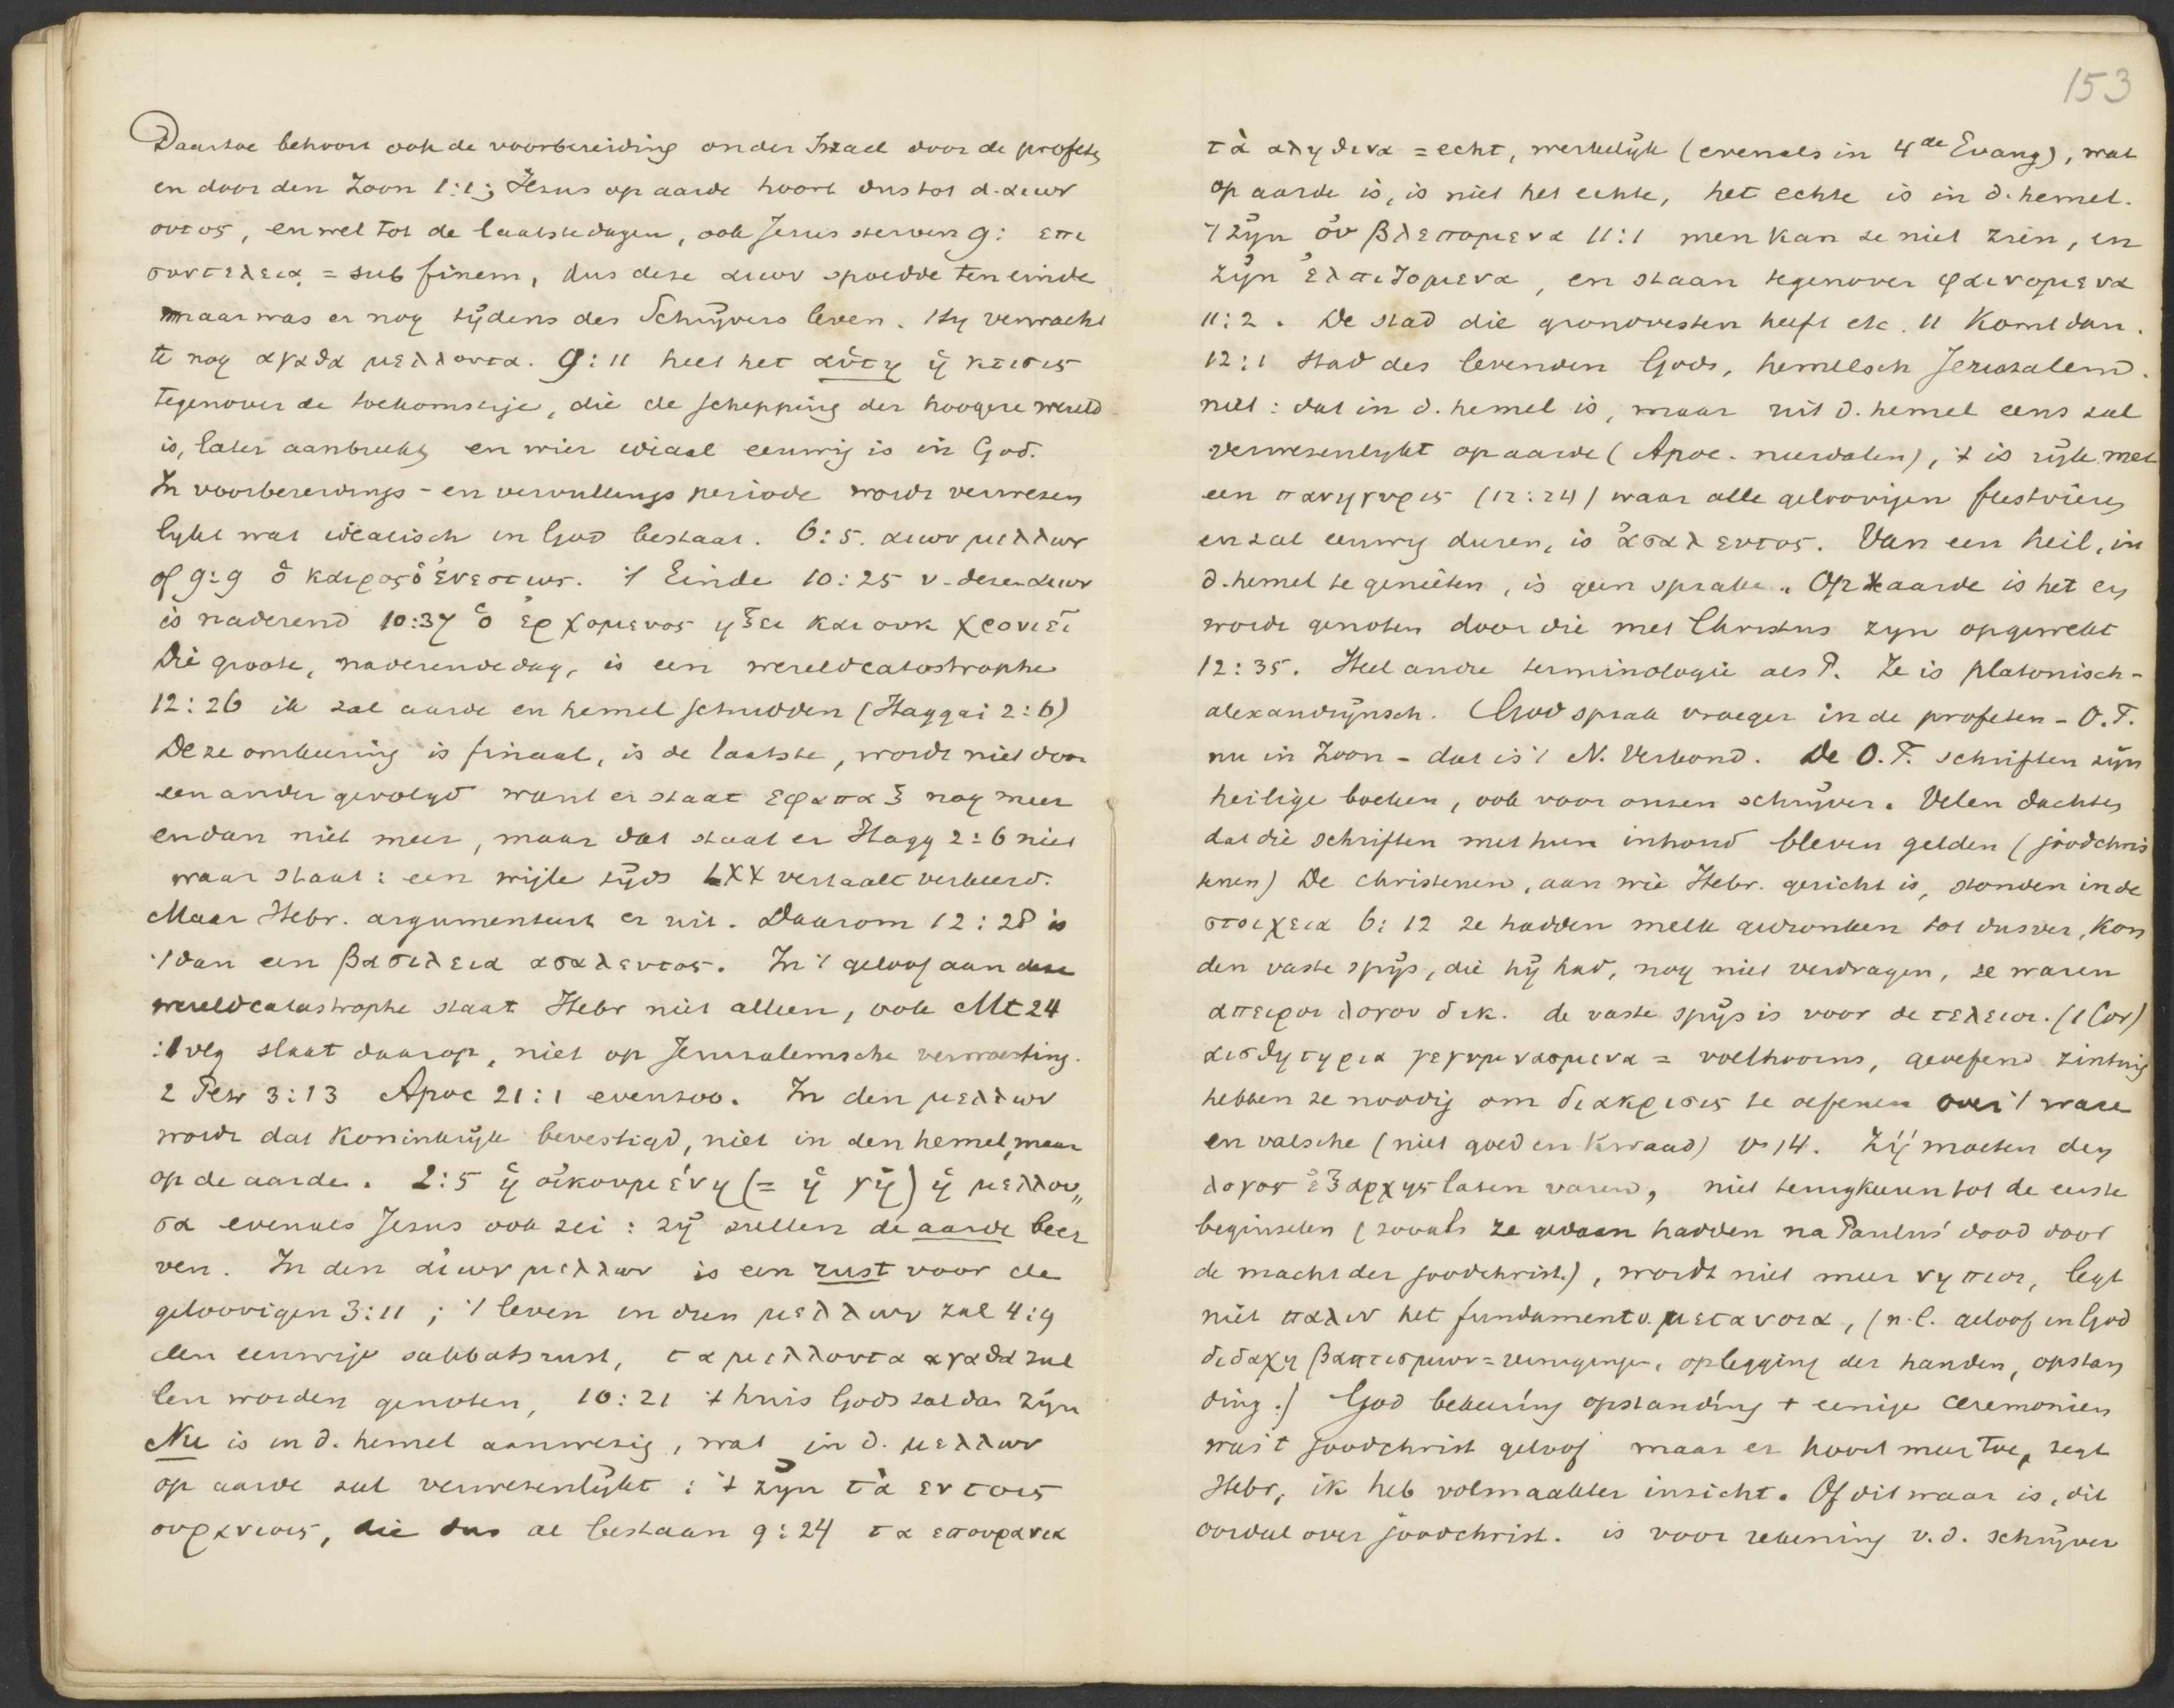 Daartoe behoort ook de voorbereiding onder Israel door de profeten
en door den Zoon 1:1; Jesus op aarde hoort dus tot d. αιων
ουτος, en wel tot de laatste dagen, ook Jesus sterven 9: επι
συντελεια = sub finem, dus deze αιων spoedde ten einde
maar was er nog tijdens des Schrijvers leven. Hij verwacht
te nog αγαθα μελλοντα. 9:11 heet het αὑτη ἡ κτισις
tegenover de toekomstige, die de schepping der hoogere wereld
is, later aanbreekt en wier ideaal eeuwig is in God.
In voorbereidings- en vervullings periode wordt verwezen
lykt wat idealisch in God bestaat. 6:5. αιων μελλων
of 9:9 ὁ καιρος ὁ ἐνεστως. 't Einde 10:25 v. dezen αιων
is naderend 10:37 ὁ ἐρχομενος ηξει και ουκ χρονιεῖ
Die groote, naderende dag, is een wereldcatastrophe
12:26 ik zal aarde en hemel schudden (Haggai 2:6)
Deze omkeering is finaal, is de laatste, wordt niet door
een ander gevolgd want er staat εφαπαξ nog meer
en dan niet meer, maar dat staat er Hagg 2:6 niet
waar staat: een wijle tijds LXX vertaalt verkeerd.
Maar Hebr. argumenteert er uit. Daarom 12:28 is
't dan een βασιλεια ασαλευτος. In 't geloof aan deze
wereldcatastrophe staat Hebr niet alleen, ook Mt 24
:1 vlg slaat daarop, niet op Jerusalemsche verwoesting.
2 Petr 3:13 Apoc 21:1 evenzoo. In den μελλων
wordt dat Koninkrijk bevestigd, niet in den hemel, maar
op de aarde. 2:5 ἡ οἰκουμένη (= ἡ γῆ) ἡ μελλου„
σα evenals Jesus ook zei: zij zullen de aarde beer
ven. In den αἰων μελλων is een rust voor de
geloovigen 3:11; 't leven in dien μελλων zal 4:9
den eeuwige sabbatsrust, τα μελλοντα αγαθα zul
len worden genoten, 10:21 't huis Gods zal dan zijn
Nu is in d. hemel aanwezig, wat in d. μελλων
op aarde zal verwesenlijkt: 't zijn τὰ εν τοις
ουρανιοις, die dus al bestaan 9:24 τα επουρανια
153
τὰ αληθινα = echt, werkelijk (evenals in 4de Evang), wat
op aarde is, is niet het echte, het echte is in d. hemel.
't zijn οὐ βλεπομενα 11:1 men kan ze niet zien, en
zijn ἐλπιζομενα, en staan tegenover φαινομενα
11:2. De stad die grondvesten heeft etc. 11 Komt dan.
12:1 stad des levenden Gods, hemelsch Jeruzalem.
niet: dat in d. hemel is, maar uit d. hemel eens zal
verwesenlykt op aarde (Apoc. neerdalen), 't is rijk met
een πανηγυρις (12:24) waar alle geloovigen feestvieren
en zal eeuwig duren, is ἀσαλευτος. Van een heil, in
d. hemel te genieten, is geen sprake. Op aarde is het en
wordt genoten door die met Christus zyn opgewekt
12:35. Heel andre terminologie als P. Ze is platonisch-
alexandrijnsch. God sprak vroeger in de profeten - O.T.
nu in Zoon - dat is 't N. Verbond. De O.T. schriften zijn
heilige boeken, ook voor onzen schrijver. Velen dachten
dat die schriften met hun inhoud bleven gelden (joodchris
tenen) De christenen, aan wie Hebr. gericht is, stonden in de
στοιχεια 6:12 ze hadden melk gedronken tot dusver, kon
den vaste spijs, die hij had, nog niet verdragen, ze waren
απειροι λογου δικ. de vaste spijs is voor de τελειοι. (1 Cor)
αισθητηρια γεγυμνασμενα = volthoorns, geoefend zintuig
hebben ze noodig om διακρισις te oefenen over 't ware
en valsche (niet goed en kwaad) v 14. Zij moeten den
λογος ἐξ αρχης laten varen, niet terugkeeren tot de eerste
beginselen (zooals ze gedaan hadden na Paulus' dood door
de macht der joodchrist.), wordt niet meer νηπιοι, legt
niet παλιν het fundament v. μετανοια, (n.l. geloof in God
διδαχη βαπτισμων = reinigingen, oplegging der handen, opstan
ding.) God bekeering opstanding + eenige ceremonien
was 't joodchrist geloof maar er hoort meer toe, zegt
Hebr, ik heb volmaakter inzicht. Of dit waar is, dit
oordeel over joodchrist. is voor rekening v.d. schrijver